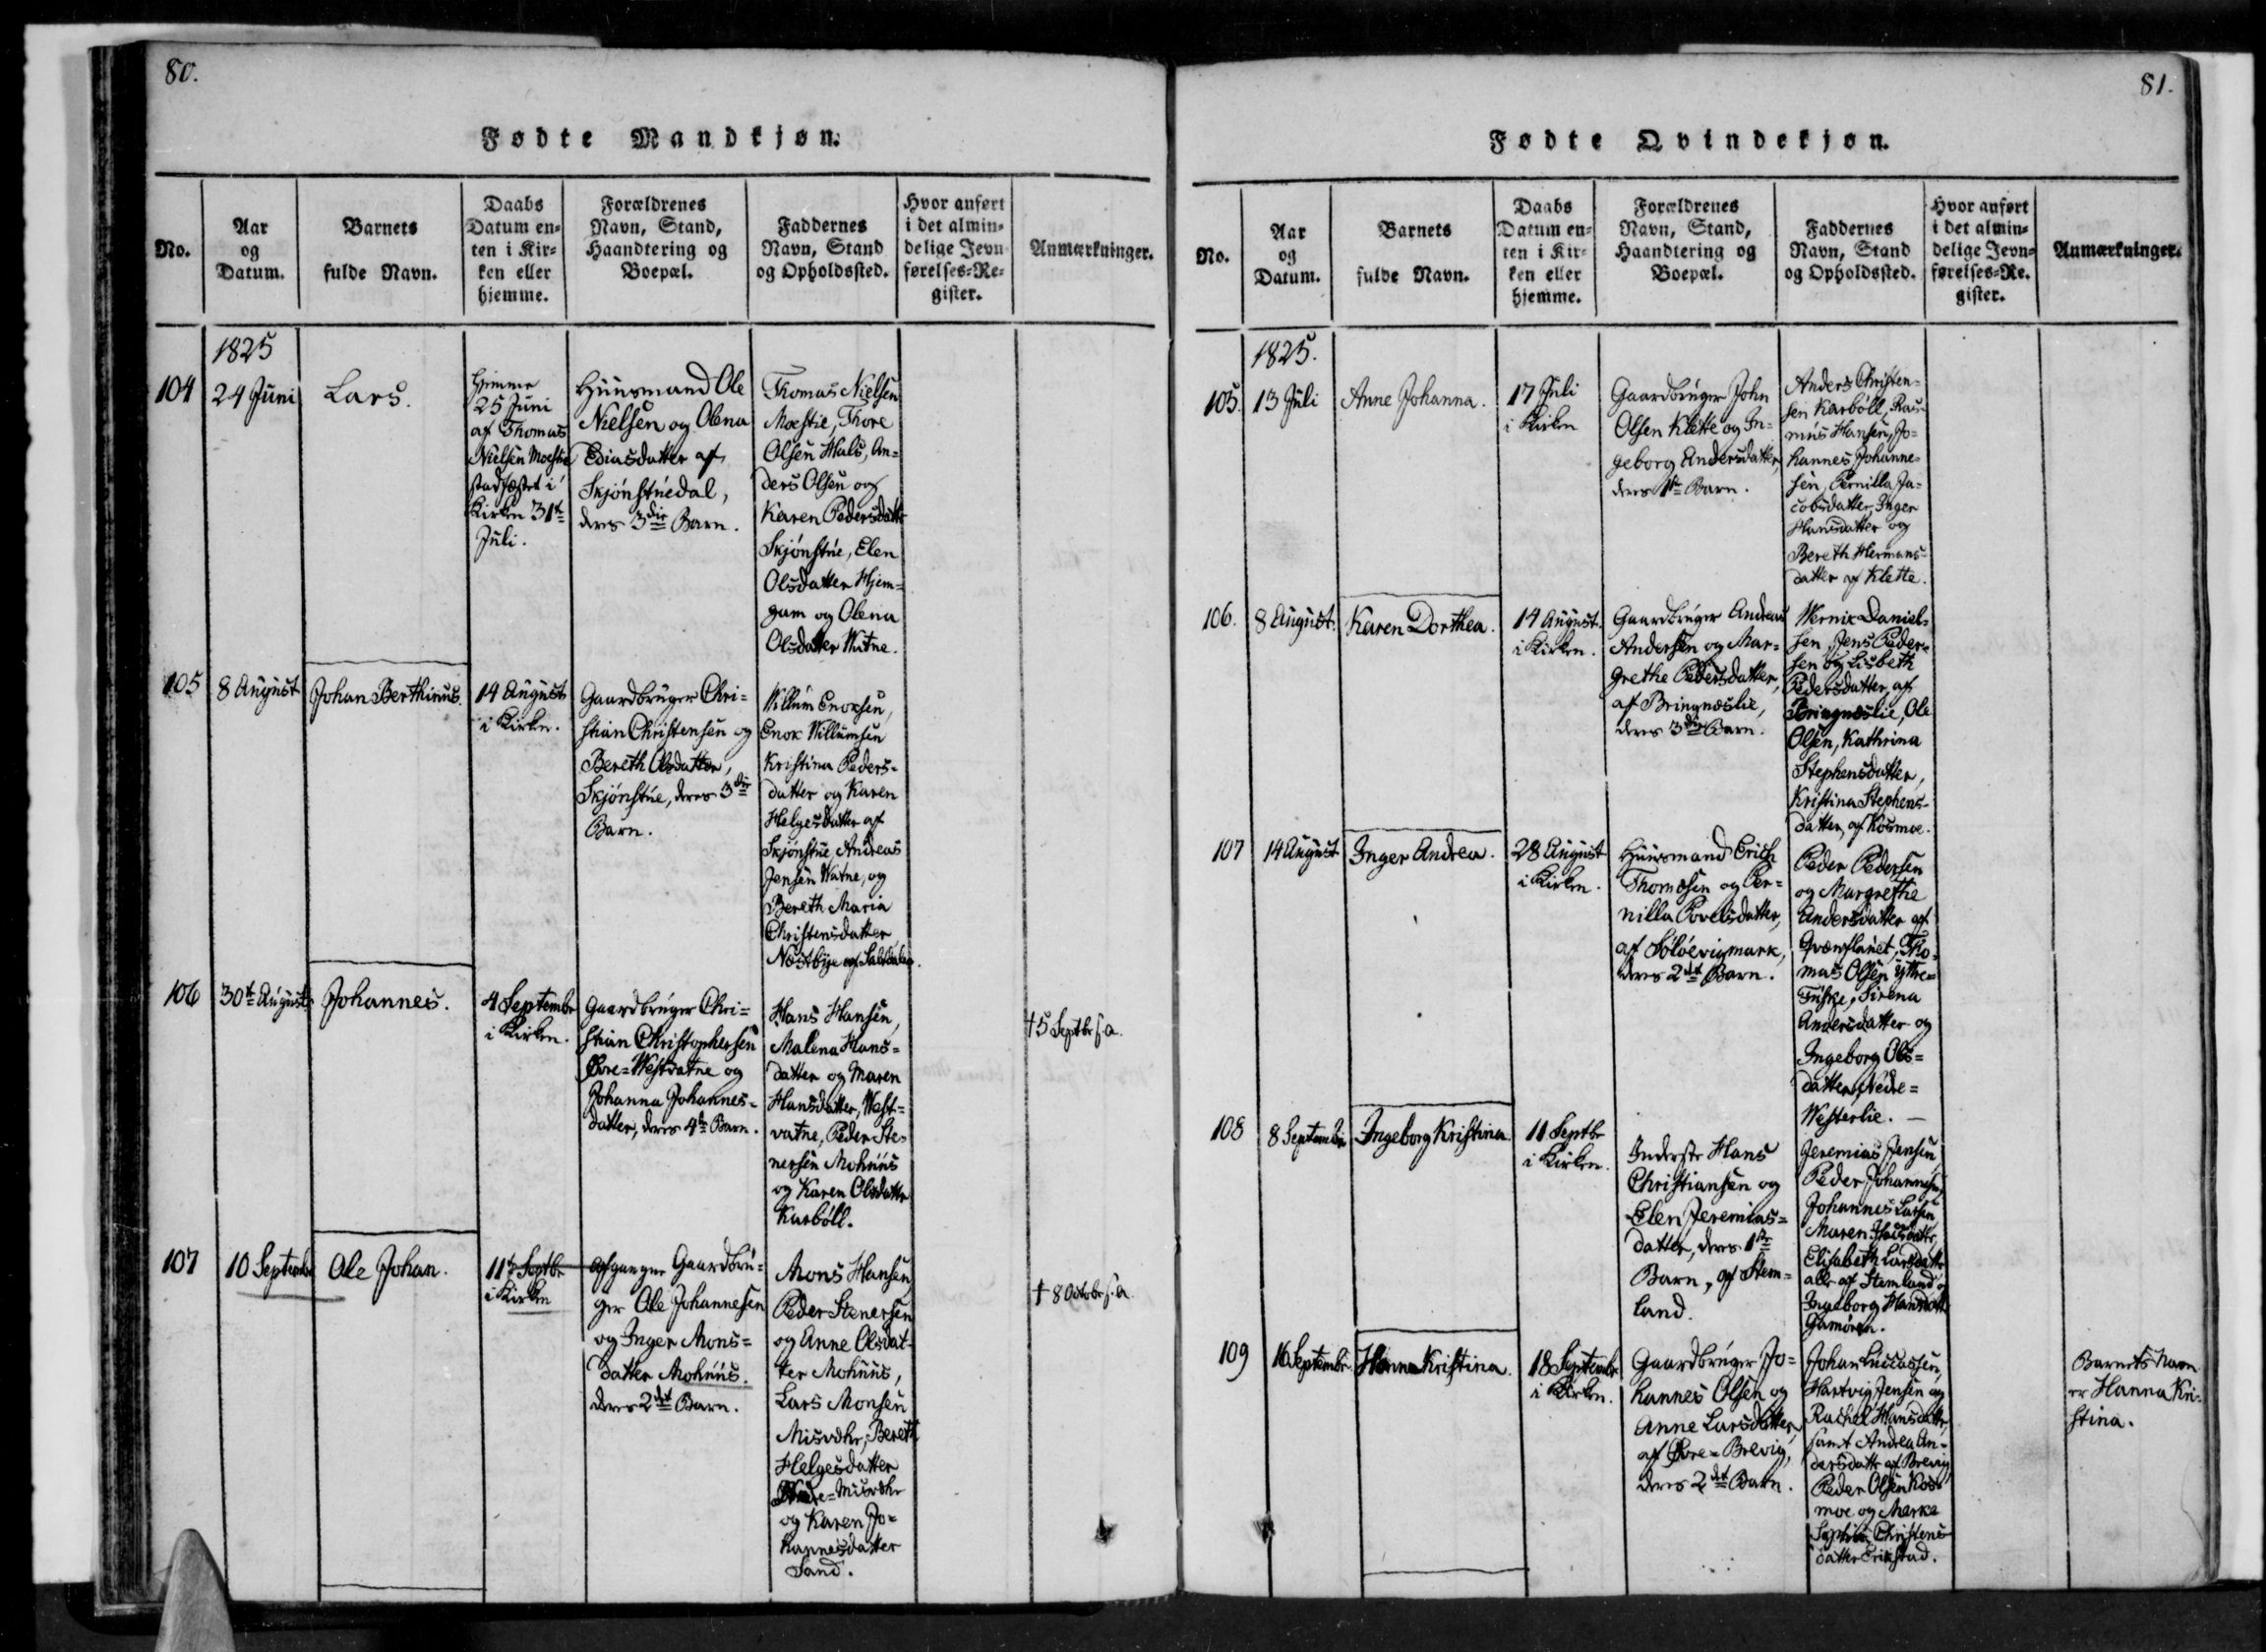 80.
Fødte Mandkjøn.
No.
Aar
og
Datum.
Barnets
fulde Navn.
Daabs
Datum en-
ten i Kir-
ken eller
hjemme.
Forældrenes
Navn, Stand,
Haandtering og
Boepæl.
Faddernes
Navn, Stand
og Opholdssted.
Hvor anført
i det almin-
delige Jevn-
førelses-Re-
gister.
Anmærkninger.
1825
104
24 Juni
Lars.
Hjemme
25 Juni
af Thomas
Nielsen Moestie
stadfæstet i
Kirken 31te
Juli.
Huusmand Ole
Nielsen og Olena
Esiasdatter af
Skjönstuedal,
deres 3die Barn.
Thomas Nielsen
Moestie, Thore
Olsen Hals, An-
ders Olsen og
Karen Pedersdatter
Skjönstue, Elen
Olsdatter Hjem-
gam og Olena
Olsdatter Watne.
105
8 August
Johan Berthinus.
14 August
i Kirken.
Gaardbruger Chri-
stian Christensen og
Bereth Olsdatter,
Skjönstue, deres 3die
Barn.
Willum Enoxsen,
Enox Willumsen
Kristina Peders-
datter og Karen
Helgesdatter af
Skjönstue, Andreas
Jensen Watne, og
Bereth Maria
Christensdatter
Næstbye af Saltdalen.
106
30te August
Johannes.
4 Septembr
i Kirken.
Gaardbruger Chri-
stian Christophersen
Øvre-Westvatne og
Johanna Johannes-
datter, deres 4de Barn.
Hans Hansen,
Malena Hans-
datter og Maren
Hansdatter, West-
vatne, Peder Ste-
nersen Mohuus
og Karen Olsdatter
Karböll.
† 5 Septbr s. a.
107
10 Septembr
Ole Johan.
11te Septbr
i Kirken
Afgangne Gaardbru-
ger Ole Johannesen
og Inger Mons-
datter Mohuus.
deres 2det Barn.
Mons Hansen
Peder Stenersen
og Anne Olsdat-
ter Mohuus,
Lars Monsen
Misvær, Bereth
Helgesdatter
Nedre-Misvær
og Karen Jo-
hannesdatter
Sand.
† 8 Octobr s. a.
81.
Fødte Qvindekjøn.
No.
Aar
og
Datum.
Barnets
fulde Navn.
Daabs
Datum en-
ten i Kir-
ken eller
hjemme.
Forældrenes
Navn, Stand,
Haandtering og
Boepæl.
Faddernes
Navn, Stand
og Opholdssted.
Hvor anført
i det almin-
delige Jevn-
førelses-Re-
gister.
Anmærkninger.
1825.
105.
13 Juli
Anne Johanna.
17 Juli
i Kirken
Gaardbruger John
Olsen Klette og In-
geborg Andersdatter,
deres 1ste Barn.
Anders Christen-
sen Karböll, Ras-
mus Hansen, Jo-
hannes Johanne-
sen, Pernilla Ja-
cobsdatter, Inger
Hansdatter og
Bereth Hermans-
datter af Klette.
106.
8 August.
Karen Dorthea.
14 August.
i Kirken.
Gaardbruger Andreas
Andersen og Mar-
grethe Pedersdatter,
af Bringneslie,
deres 3die Barn.
Wernix Daniel-
sen, Jens Peder-
sen og Lisbeth
Pedersdatter, af
Bringneslie, Ole
Olsen, Kathrina
Stephensdatter,
Kristina Stephens-
datter, af Kosmoe.
107
14 August
Inger Andrea.
28 August
i Kirken.
Huusmand Erich
Thomesen og Per-
nilla Povelsdatter,
af Solöevigmark,
deres 2det Barn.
Peder Pedersen
og Margrethe
Andersdatter af
Qvænflaaet, Tho-
mas Olsen Yttre-
Fuske, Sirena
Andersdatter og
Ingeborg Ols-
datter, Nedre-
Westerlie.
108
8 Septembr
Ingeborg Kristina.
11 Septbr
i Kirken.
Inderste Hans
Christiansen og
Elen Jeremias-
datter, deres 1ste
Barn, af Stem-
land.
Jeremias Jensen
Peder Johannesen
Johannes Larsen
Maren
Elisabeth Larsdatter
alle af Stemland og
Ingeborg Hansdatter
109
16 Septembr.
Hanna Kristina.
18 Septembr
i Kirken.
Gaardbruger Jo-
hannes Olsen og
Anne Larsdatter,
af Øvre-Brevig,
deres 2det Barn.
Johan Luccassen,
Hartvig Jensen og
Rachel Hansdatter
samt Andrea An-
dersdatter af Brevig
Peder Olsen Kos-
moe og Marka
Sophia Christens-
datter Erikstad.
Barnets Navn
er Hanna Kri-
stina.